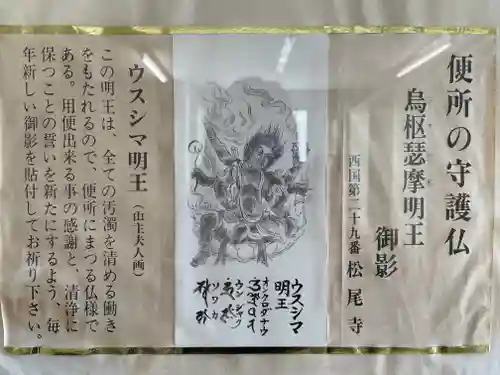 便所の守護仏
烏枢瑟摩明王
御影
西国第二十九番 松尾寺
ウスシマ
明王
オン クロダナウ
ウン ジャク
ソワカ
ウスシマ明王(山主夫人画)
この明王は、全ての汚濁を清める働き
をもたれるので、便所にまつる仏様で
ある。用便出来る事の感謝と、清浄に
保つことの誓いを新たにするよう、毎
年新しい御影を貼付してお祈り下さい。